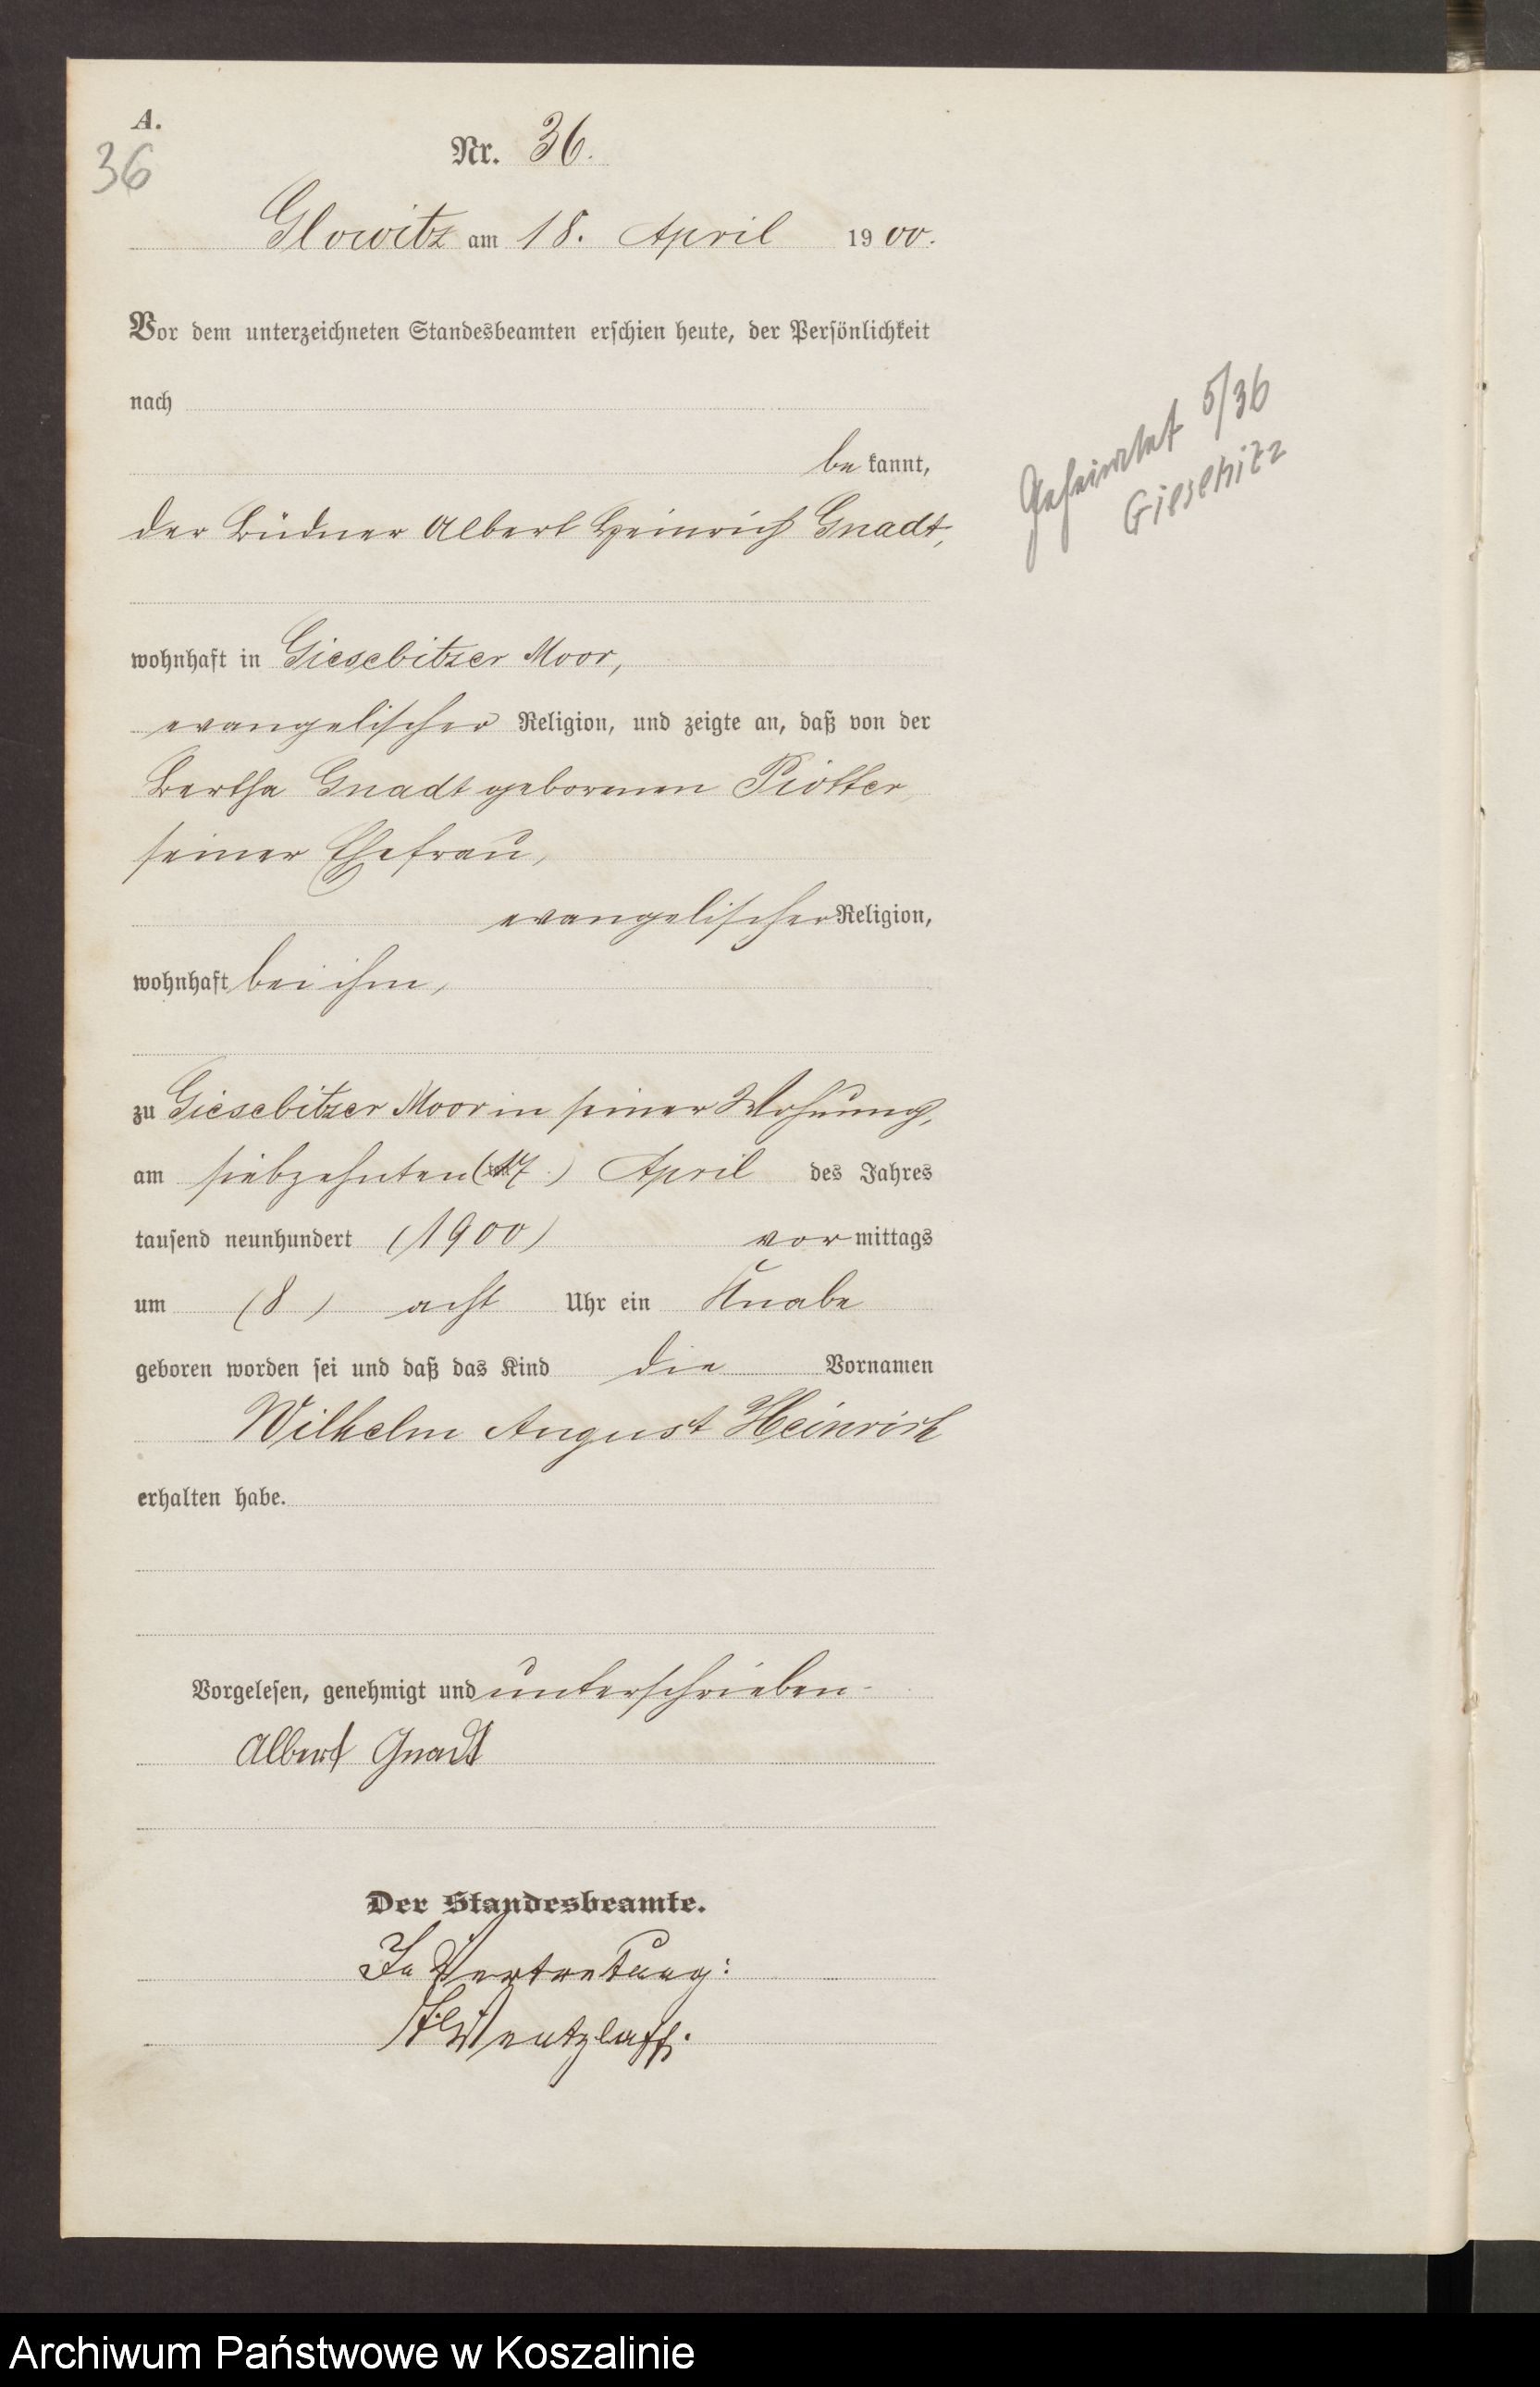 A.
36
Nr. 36.
Glowitz am 18. April 1900.
Vor dem unterzeichneten Standesbeamten erschien heute, der Persönlichkeit
nach
be kannt,
der Büdner Albert Heinrich Gnadt,
wohnhaft in Giesebitzer Moor,
evangelischer Religion, und zeigte an, daß von der
Bertha Gnadt geborenen Piotter,
seiner Ehefrau,
evangelischer Religion,
wohnhaft bei ihm,
zu Giesebitzer Moor in seiner Wohnung,
am siebzehnten (17.) April des Jahres
tausend neunhundert (1900) vor mittags
um (8) acht Uhr ein Knabe
geboren worden sei und daß das Kind die Vornamen
Wilhelm August Heinrich
erhalten habe.
Vorgelesen, genehmigt und unterschrieben
Albert Gnadt
Der Standesbeamte.
In Vertretung:
Wentzlaff.
Geheiratet 5/36
Giesebitz
Archiwum Państwowe w Koszalinie